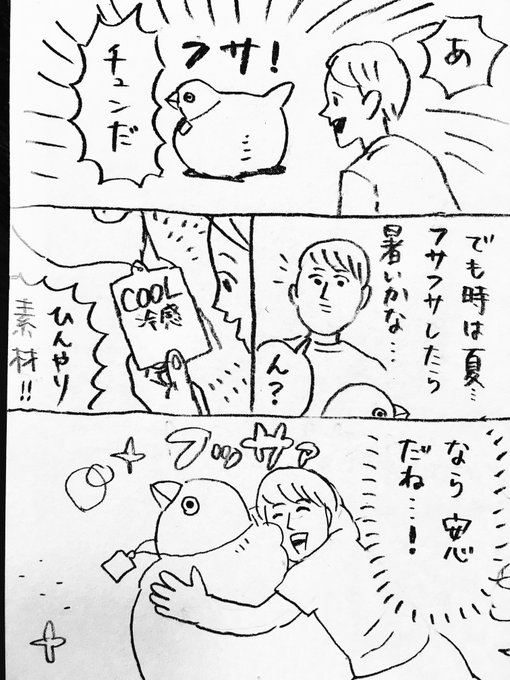 あ
フサ!
チュンだ
でも時は夏…
フサフサしたら
暑いかな…
ん?
COOL
冷感
ひんやり
素材!!
なら安心
だね…!
フッサァ